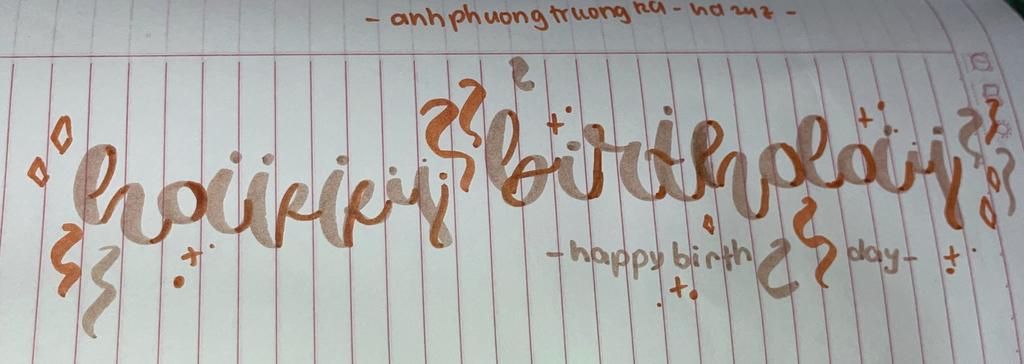 - anhphuongtruong
happy birthday
- happy birth day -